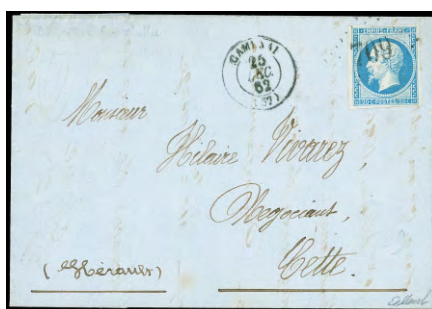 25
DEC
62
EMPIRE FRANC
20 C POSTES 20 C
Monsieur
Hilaire Vivarez,
Negociant,
Cette.
(Hérault)